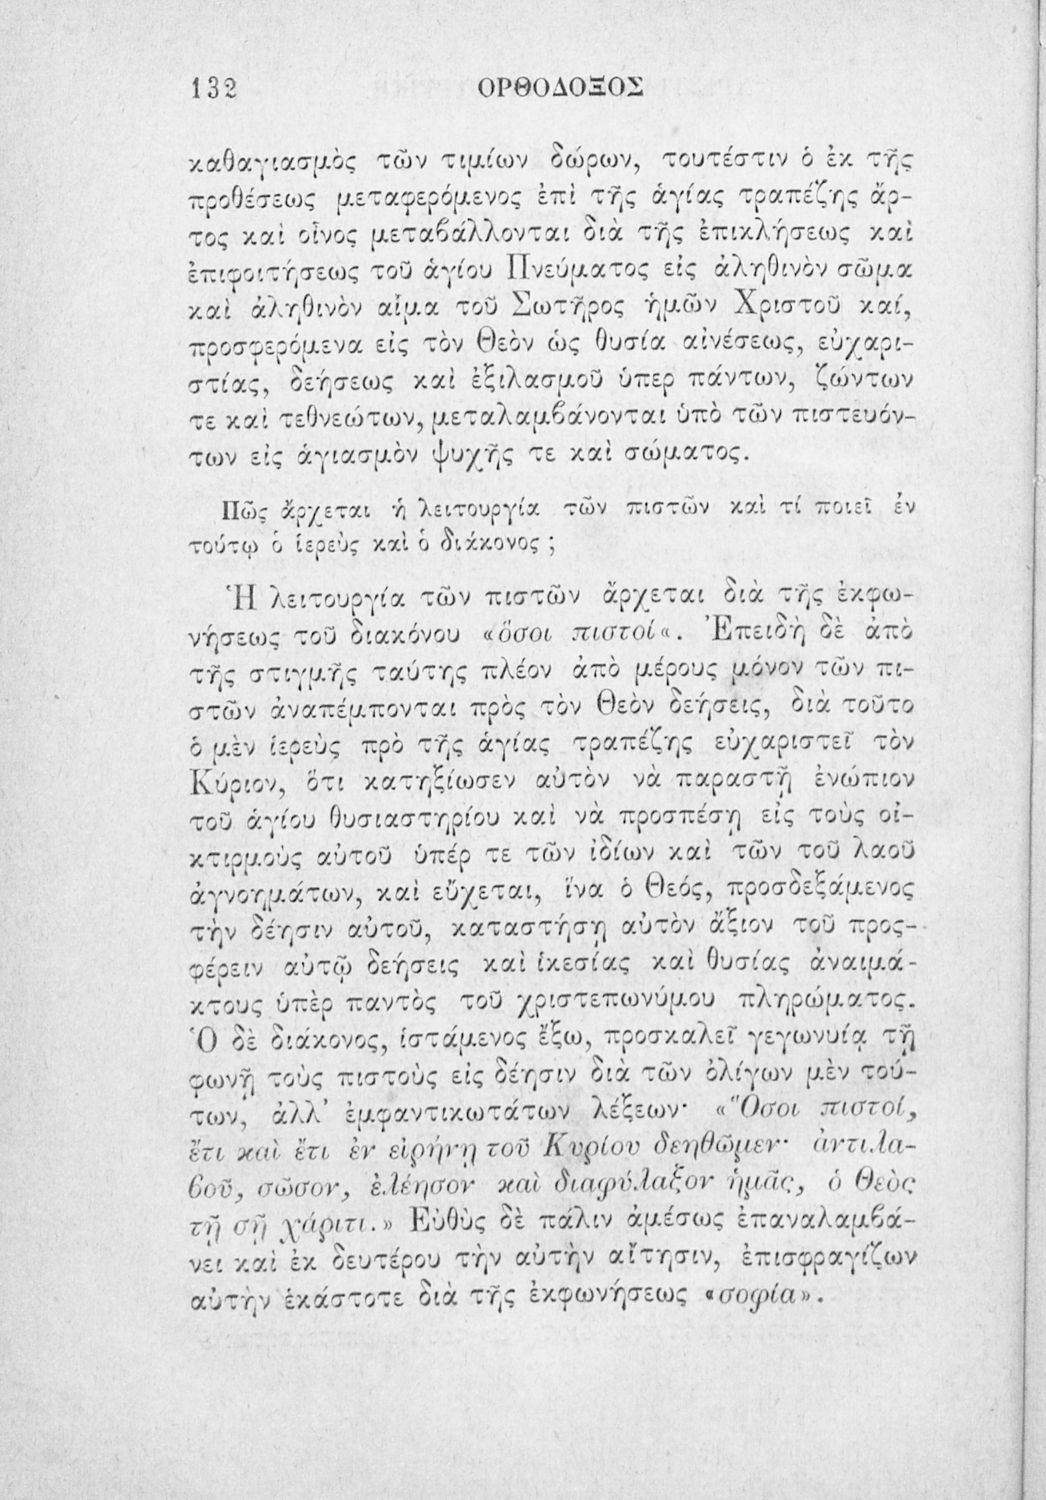 132 ΟΡΘΟΔΟΞΟΣ
καθαγιασμὸς τῶν τιμίων δώρων, τουτέστιν ὁ ἐκ τῆς
προθέσεως μεταφερόμενος ἐπὶ τῆς ἁγίας τραπέζης ἄρ-
τος καὶ οἶνος μεταβάλλονται διὰ τῆς ἐπικλήσεως καὶ
ἐπιφοιτήσεως τοῦ ἁγίου Πνεύματος εἰς ἀληθινὸν σῶμα
καὶ ἀληθινὸν αἷμα τοῦ Σωτῆρος ἡμῶν Χριστοῦ καί,
προσφερόμενα εἰς τὸν Θεὸν ὡς θυσία αἰνέσεως, εὐχαρι-
στίας, δεήσεως καὶ ἐξιλασμοῦ ὑπερ πάντων, ζώντων
τε καὶ τεθνεώτων, μεταλαμβάνονται ὑπὸ τῶν πιστευόν-
των εἰς ἁγιασμὸν ψυχῆς τε καὶ σώματος.
Πῶς ἄρχεται ἡ λειτουργία τῶν πιστῶν καὶ τί ποιεῖ ἐν
τούτῳ ὁ ἱερεὺς καὶ ὁ διάκονος ;
Ἡ λειτουργία τῶν πιστῶν ἄρχεται διὰ τῆς ἐκφω-
νήσεως τοῦ διακόνου «ὅσοι πιστοί«. Ἐπειδὴ δὲ ἀπὸ
τῆς στιγμῆς ταύτης πλέον ἀπὸ μέρους μόνον τῶν πι-
στῶν ἀναπέμπονται πρὸς τὸν Θεὸν δεήσεις, διὰ τοῦτο
ὁ μὲν ἱερεὺς πρὸ τῆς ἁγίας τραπέζης εὐχαριστεῖ τὸν
Κύριον, ὅτι κατηξίωσεν αὐτὸν νὰ παραστῇ ἐνώπιον
τοῦ ἁγίου θυσιαστηρίου καὶ νὰ προσπέσῃ εἰς τοὺς οἰ-
κτιρμοὺς αὐτοῦ ὑπέρ τε τῶν ἰδίων καὶ τῶν τοῦ λαοῦ
ἀγνοημάτων, καὶ εὔχεται, ἵνα ὁ Θεός, προσδεξάμενος
τὴν δέησιν αὐτοῦ, καταστήσῃ αὐτὸν ἄξιον τοῦ προς-
φέρειν αὐτῷ δεήσεις καὶ ἱκεσίας καὶ θυσίας ἀναιμά-
κτους ὑπὲρ παντὸς τοῦ χριστεπωνύμου πληρώματος.
Ὁ δὲ διάκονος, ἱστάμενος ἔξω, προσκαλεῖ γεγωνυίᾳ τῇ
φωνῇ τοὺς πιστοὺς εἰς δέησιν διὰ τῶν ὀλίγων μὲν τού-
των, ἀλλ' ἐμφαντικωτάτων λέξεων· «Ὅσοι πιστοί,
ἔτι καὶ ἔτι ἐν εἰρήνῃ τοῦ Κυρίου δεηθῶμεν· ἀντιλα-
βοῦ, σῶσον, ἐλέησον καὶ διαφύλαξον ἡμᾶς, ὁ Θεὸς
τῇ σῇ χάριτι.» Εὐθὺς δὲ πάλιν ἀμέσως ἐπαναλαμβά-
νει καὶ ἐκ δευτέρου τὴν αὐτὴν αἴτησιν, ἐπισφραγίζων
αὐτὴν ἑκάστοτε διὰ τῆς ἐκφωνήσεως «σοφία».